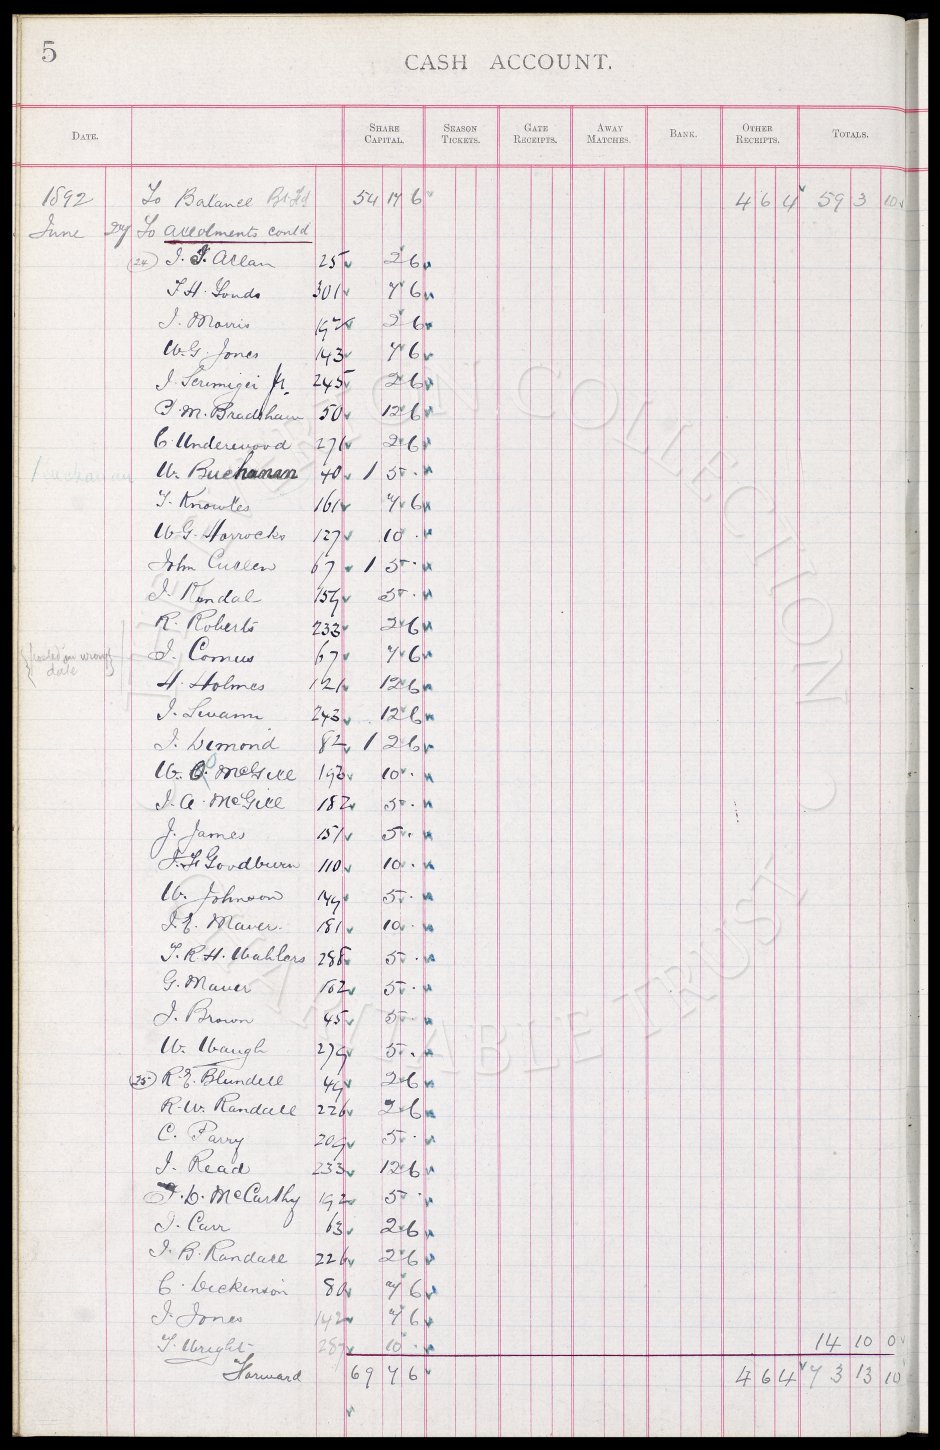 5
CASH ACCOUNT.
DATE. SHARE CAPITAL. SEASON TICKETS. GATE RECEIPTS. AWAY MATCHES. BANK. OTHER RECEIPTS. TOTALS.
1892 To Balance Bt Fd 54 17 6 4 6 4 59 3 10
June 27 To allotments contd
(24) J. J. Allan 25 2 6
301 7 6
J. Morris 2 6
W. G. Jones 143 7 6
J. Scrimiger Jr. 245 2 6
C. M. Bradshaw 50 12 6
C. Underwood 271 2 6
Buchanan W. Buchanan 40 1 5 .
T. Knowles 161 7 6
W G. Horrocks 127 10 .
John Cullen 67 1 5 .
J. Kendal 159 5 .
R. Roberts 233 2 6
(posted in wrong date) J. Comus 67 7 6
H. Holmes 121 12 6
J. Swann 243 12 6
J. Dimond 82 1 2 6
W. McGill 193 10 .
J. A. McGill 182 5 .
J. James 151 5 .
J. H Goodburn 110 10 .
W. Johnson 149 5 .
J. E. Maver. 181 10 .
T. R. H. Wahlers 288 5 .
G. Maver 182 5 .
J. Brown 45 5
W. Waugh 279 5 .
(25) R. E. Blundell 49 2 6
R. W. Randall 226 2 6
C. Parry 209 5 .
J. Read 233 12 6
J. D. McCarthy 192 5 .
J. Carr 63 2 6
J. B. Randall 226 2 6
C. Dickinson 80 7 6
J. Jones 142 7 6
T. Wright 287 10 . 14 10 0
Forward 69 7 6 4 6 4 73 13 10
EVERTON COLLECTION
CHARITABLE TRUST